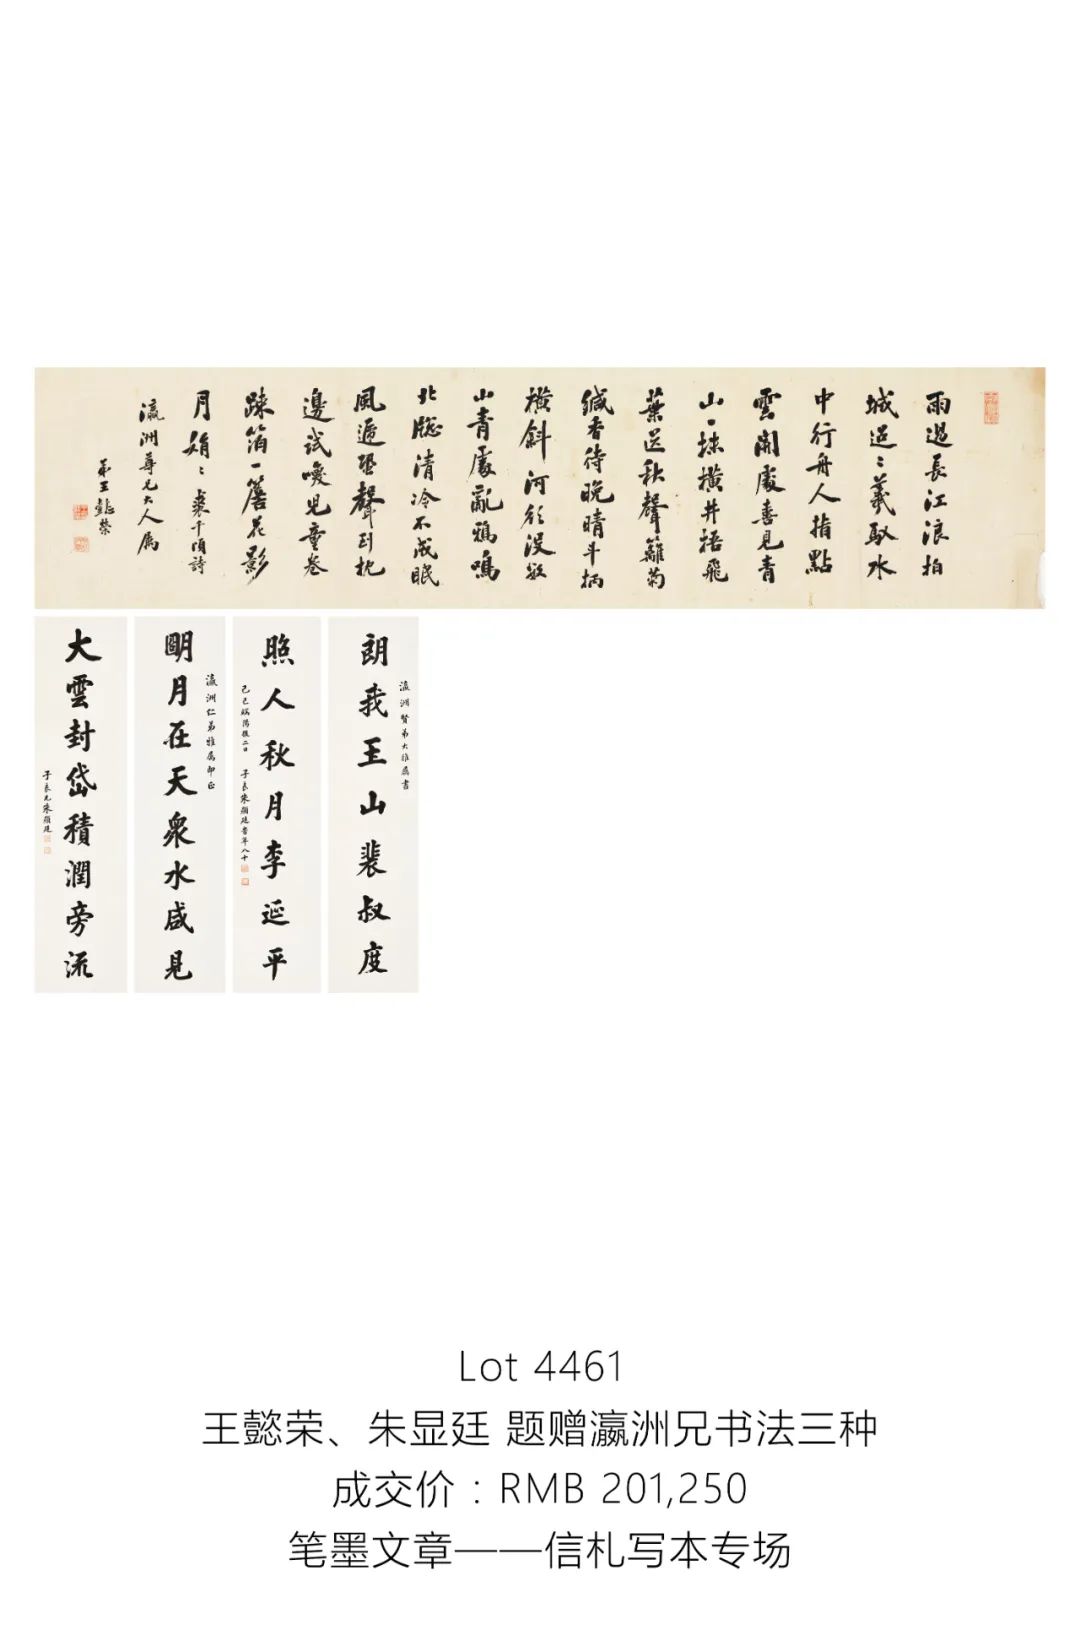 雨過長江浪拍
城迢〻羲馭水
中行舟人指點
雲開處喜見青
山一抹橫井梧飛
葉送秋聲籬菊
緘香待晚晴斗柄
橫斜河欲沒數
山青處亂鴉鳴
北牕清冷不成眠
風遞蛩聲到枕
邊試喚兒童卷
疎箔一簷花影
月娟〻 裘千頃詩
瀛洲尊兄大人屬
弟王懿榮
瀛洲賢弟大雅屬書
朗我玉山裴叔度
照人秋月李延平
己巳端陽後二日 子良朱顯廷書年八十
瀛洲仁弟雅屬即正
明月在天衆水咸見
大雲封岱積潤旁流
子良兄朱顯廷
Lot 4461
王懿荣、朱显廷 题赠瀛洲兄书法三种
成交价：RMB 201,250
笔墨文章——信札写本专场